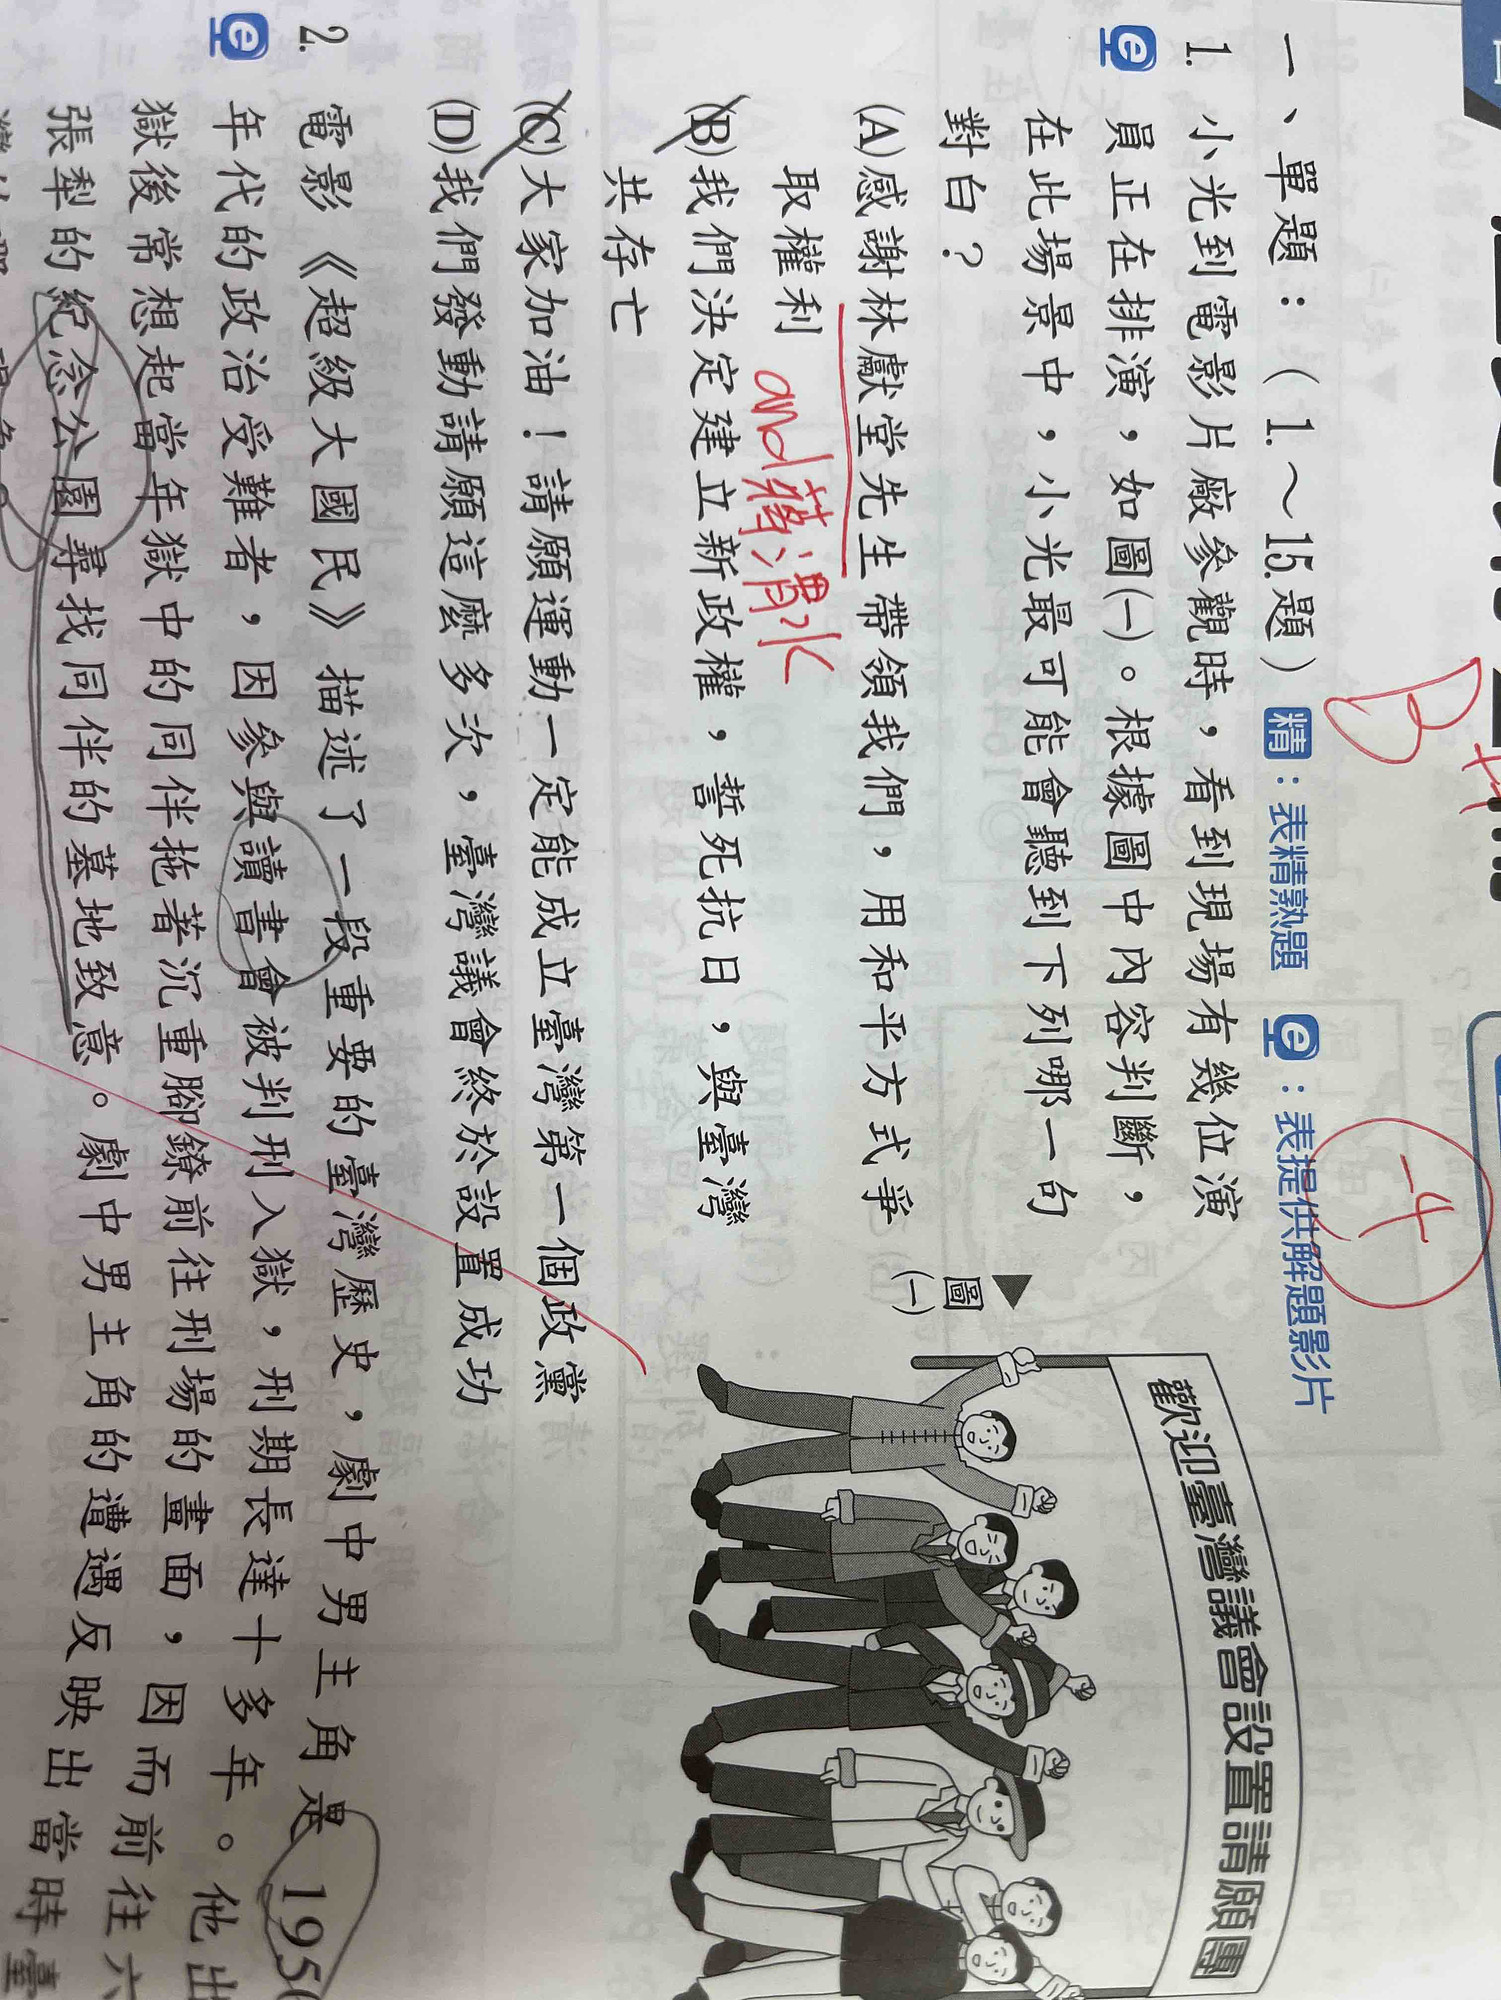 B+
一、單題：（1.～15.題） 精：表精熟題 e：表提供解題影片
-4
1. 小光到電影片廠參觀時，看到現場有幾位演
e 員正在排演，如圖(一)。根據圖中內容判斷，
在此場景中，小光最可能會聽到下列哪一句
對白？
(A)感謝林獻堂先生帶領我們，用和平方式爭
取權利
and蔣渭水
(B)我們決定建立新政權，誓死抗日，與臺灣
共存亡
(C)大家加油！請願運動一定能成立臺灣第一個政黨
(D)我們發動請願這麼多次，臺灣議會終於設置成功
歡迎臺灣議會設置請願團
▲圖(一)
2. 電影《超級大國民》描述了一段重要的臺灣歷史，劇中男主角是195
e 年代的政治受難者，因參與讀書會被判刑入獄，刑期長達十多年。他出
獄後常想起當年獄中的同伴拖著沉重腳鐐前往刑場的畫面，因而前往六
張犁的紀念公園尋找同伴的墓地致意。劇中男主角的遭遇反映出當時臺